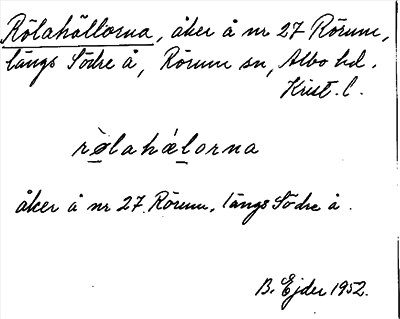 Rölahöllorna, åker å nr 27 Rörum,
längs Södre å, Rörum sn, Albo hd.
Krist. l.
rø̀lahǽlorna
åker å nr 27 Rörum, längs Södre å.
B. Ejder 1952.